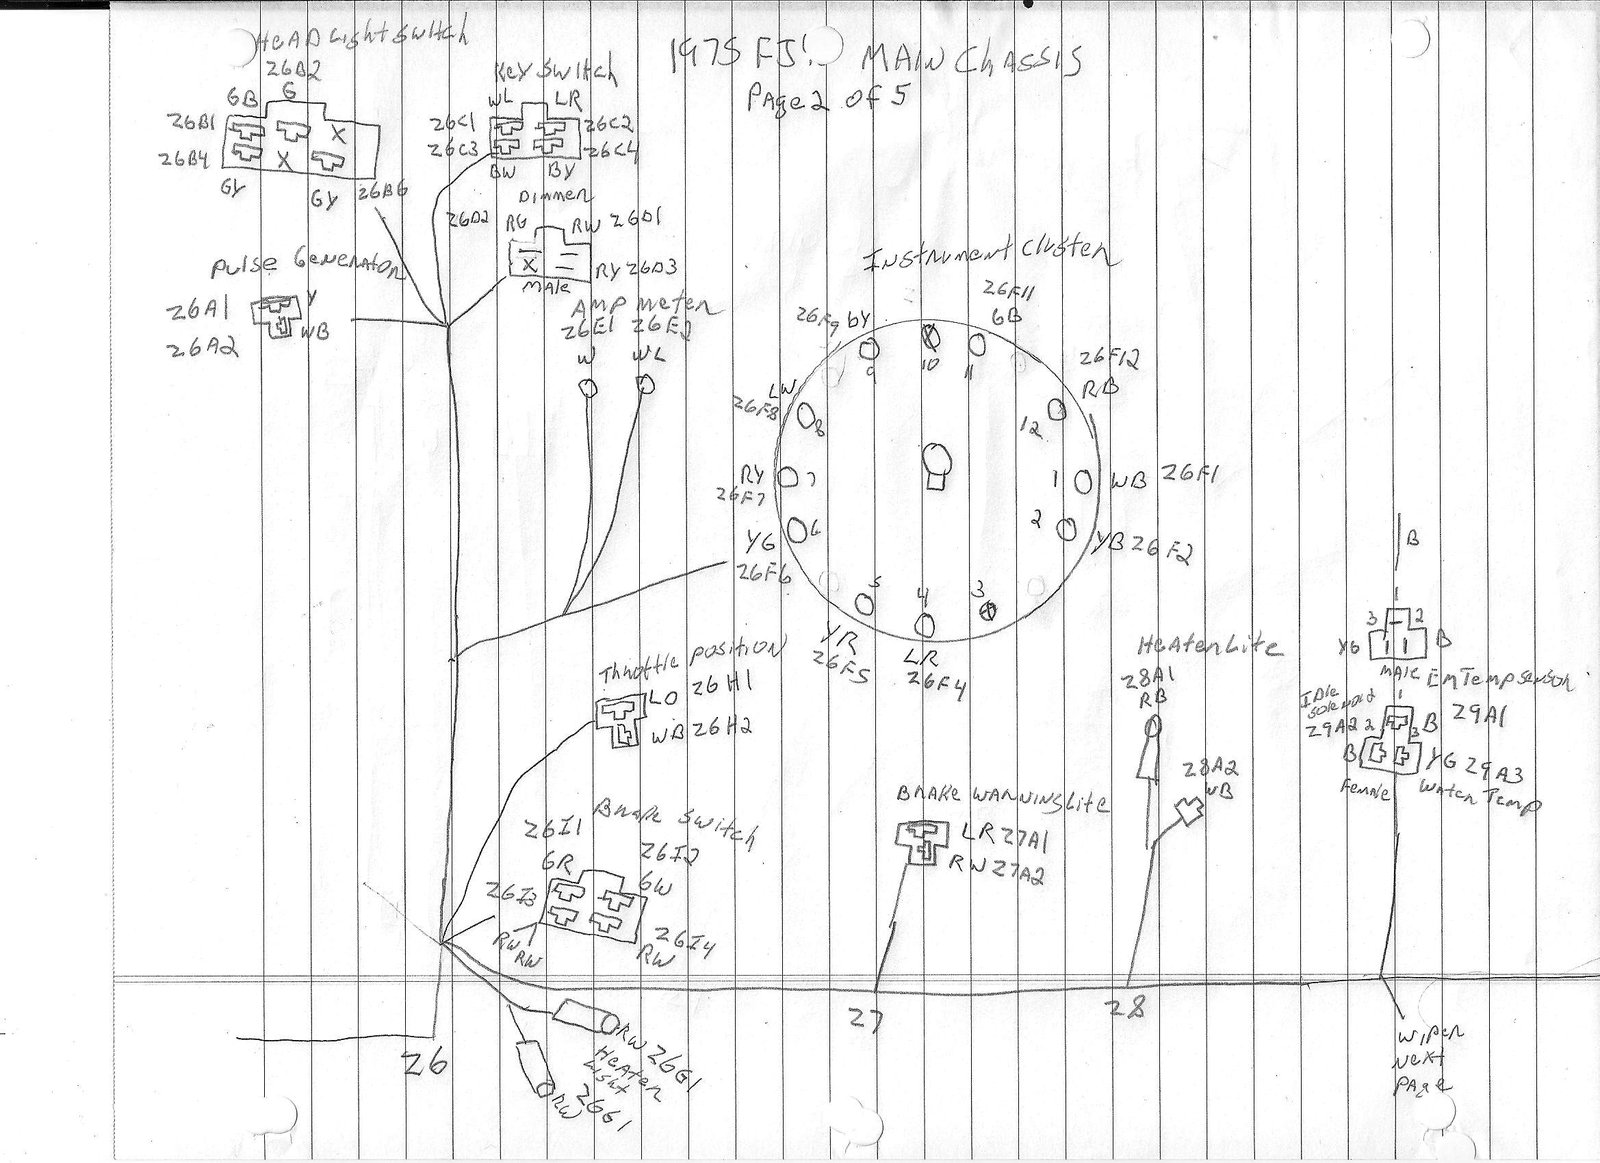 1975 FJ! MAIN CHASSIS
PAge 2 of 5
HEAD Light Switch
26B2
GB G
26B1
X
26B4
X
GY
GY 26B6
Key Switch
WL LR
26C1 26C2
26C3 26C4
BW BY
Dimmer
26D2 RG RW 26D1
X
RY 26D3
MAle
Pulse Generator
26A1 Y
WB
26A2
AMP meter
26E1 26E2
W WL
Instrument Cluster
26F11
26F9 bY GB
9 10 11
26F12
RB
12
LW
26F8
8
RY
26F7
7
1 WB 26F1
2
YB 26F2
YG
26F6
6
5 4 3
YR
26F5
LR
26F4
Throttle position
LO 26H1
WB 26H2
Brake Switch
26I1
26I2
GR
GW
26I3
26I4
RW
RW
RW
RW 26G1
HEATER
Light
26G1
RW
26
BRAKE WARNING Lite
LR 27A1
RW 27A2
27
HEATER Lite
28A1
RB
28A2
WB
28
B
1
3 2
YG B
MAle
Em Temp sensor
1
Idle
Solenoid
29A2 2 B 29A1
3
B YG 29A3
Female Water Temp
WIPER
Next
PAge